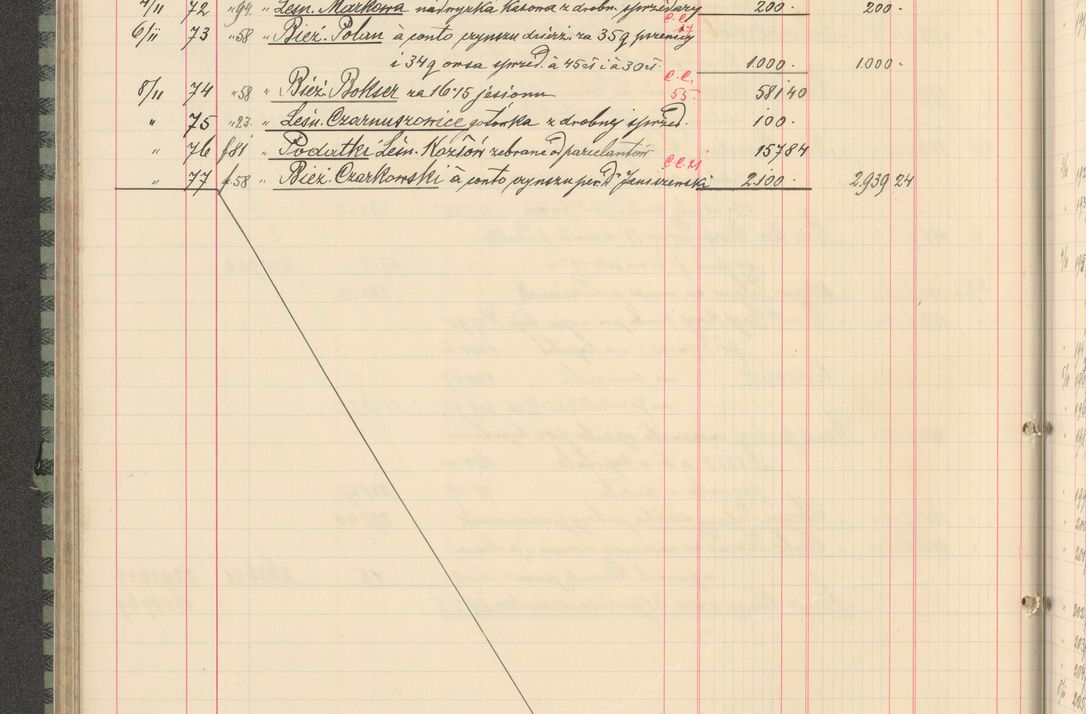 4/II 72 "94. " Leśn. Markowa nadwyżka kasowa z drobn. sprzedaży 200 · 200 ·
6/II 73 "58 " Bież. Polan à conto czynszu dzierż. za 35 q pszenicy C.C. 57
i 34 q owsa sprzed. à 45 zł i à 30 zł. 1.000 · 1.000 ·
8/II 74 "58 " Bież. Bokser za 16·15 jesionu C.C. 55. 581 40
" 75 "23. " Leśn. Czarnuszowice gotówka z drobnej sprzed. 100 ·
" 76 f 81 " Podatki Leśn. Kozłów zebrane od parcelantów 157 84
" 77 f. 58 " Bież. Czarkowski à conto czynszu per Dr C.C. 2.100 · 2.939 24